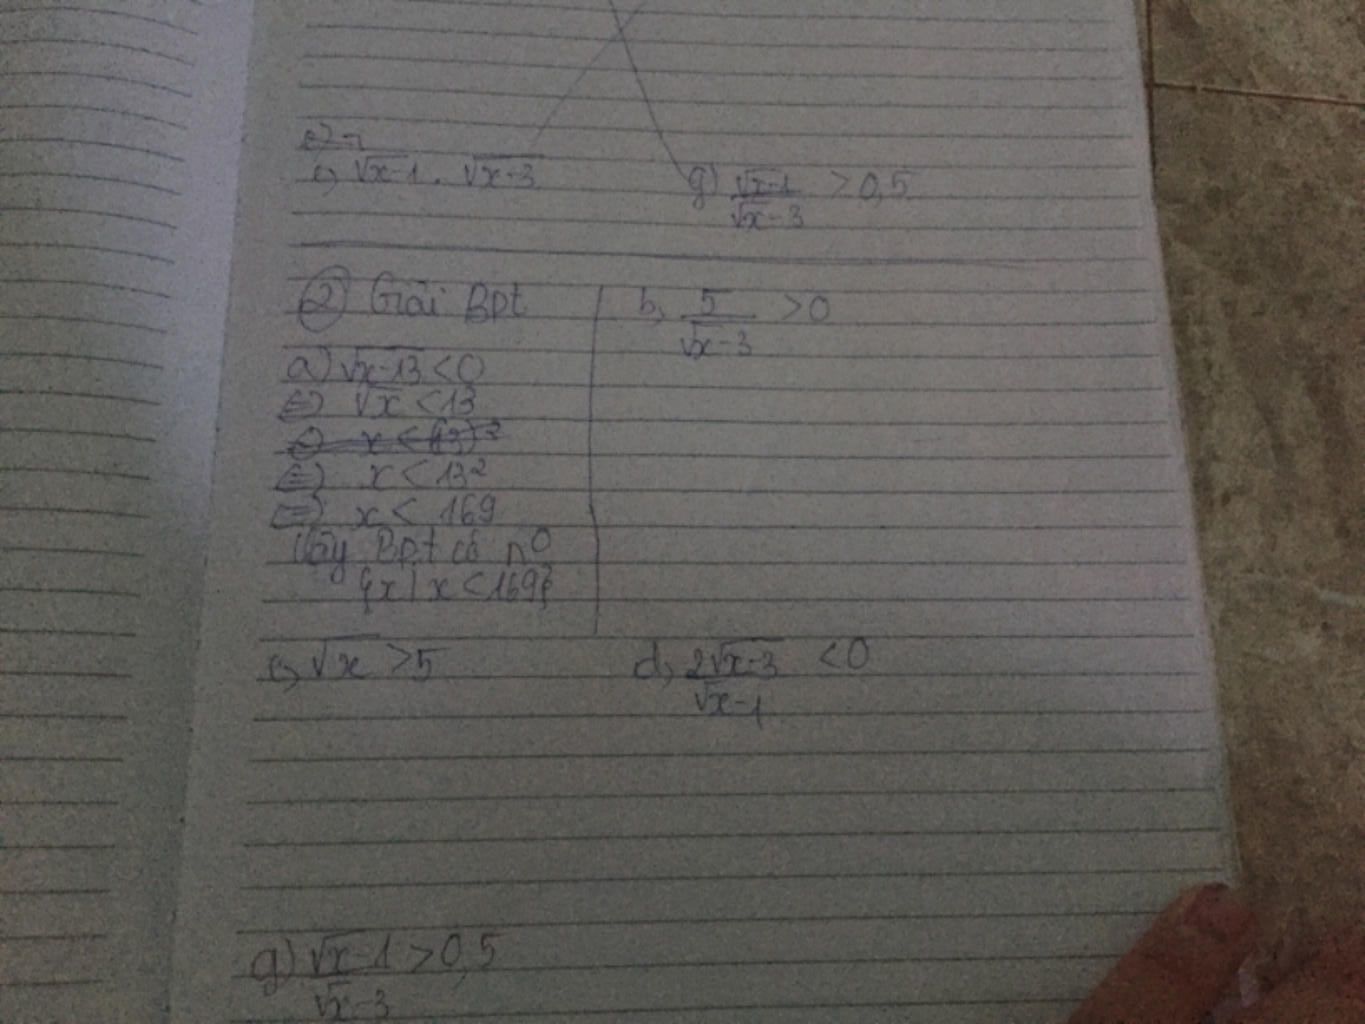 c) √x-1 . √x-3
g) √x-1 / √x-3 > 0,5
② Giải Bpt
a) √x-13 < 0
⇔ √x < 13
⇔ x < 13²
⇔ x < 169
Vậy Bpt có n0
{x | x < 169}
b, 5 / √x-3 > 0
c, √x > 5
d, 2√x-3 / √x-1 < 0
g) √x-1 / √x-3 > 0,5